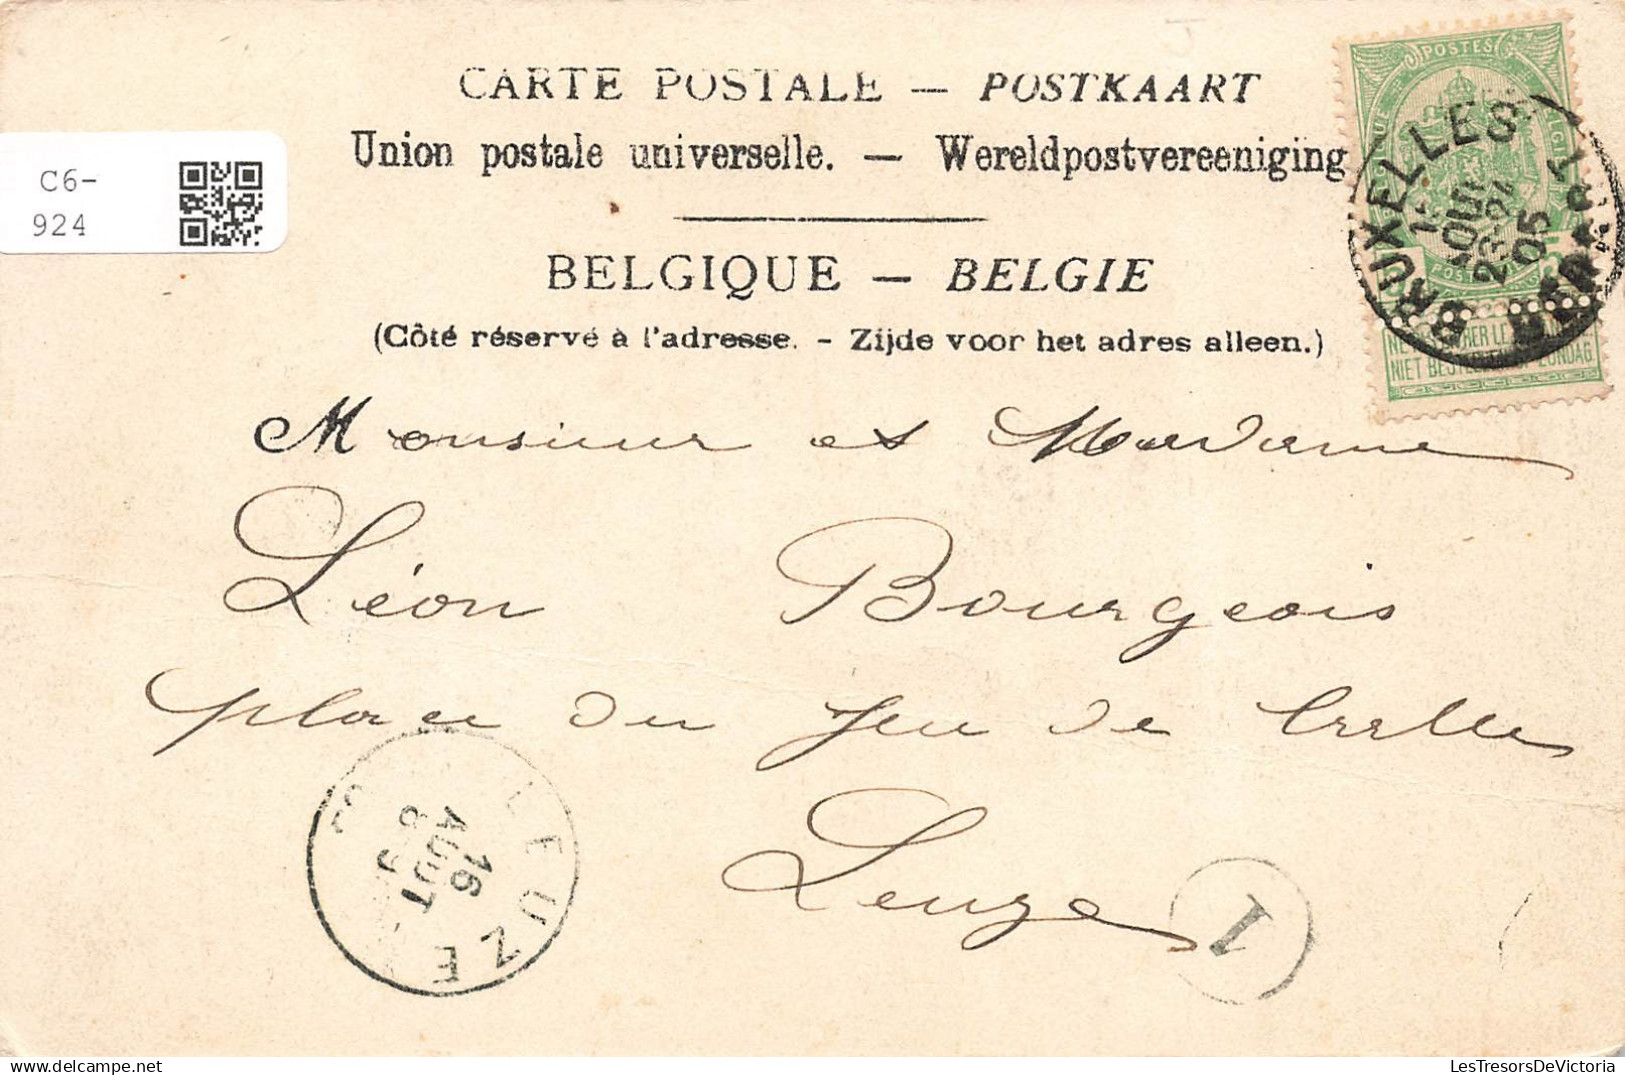 CARTE POSTALE — POSTKAART
Union postale universelle. — Wereldpostvereeniging
BELGIQUE — BELGIE
(Côté réservé à l'adresse. - Zijde voor het adres alleen.)
C6-
924
POSTES
BRUXELLES
05
NIET BESTELLEN OP ZONDAG
Monsieur et Madame
Léon Bourgeois
place du Jeu de balle
Leuze
LEUZE
16
AOUT
1
LesTresorsDeVictoria